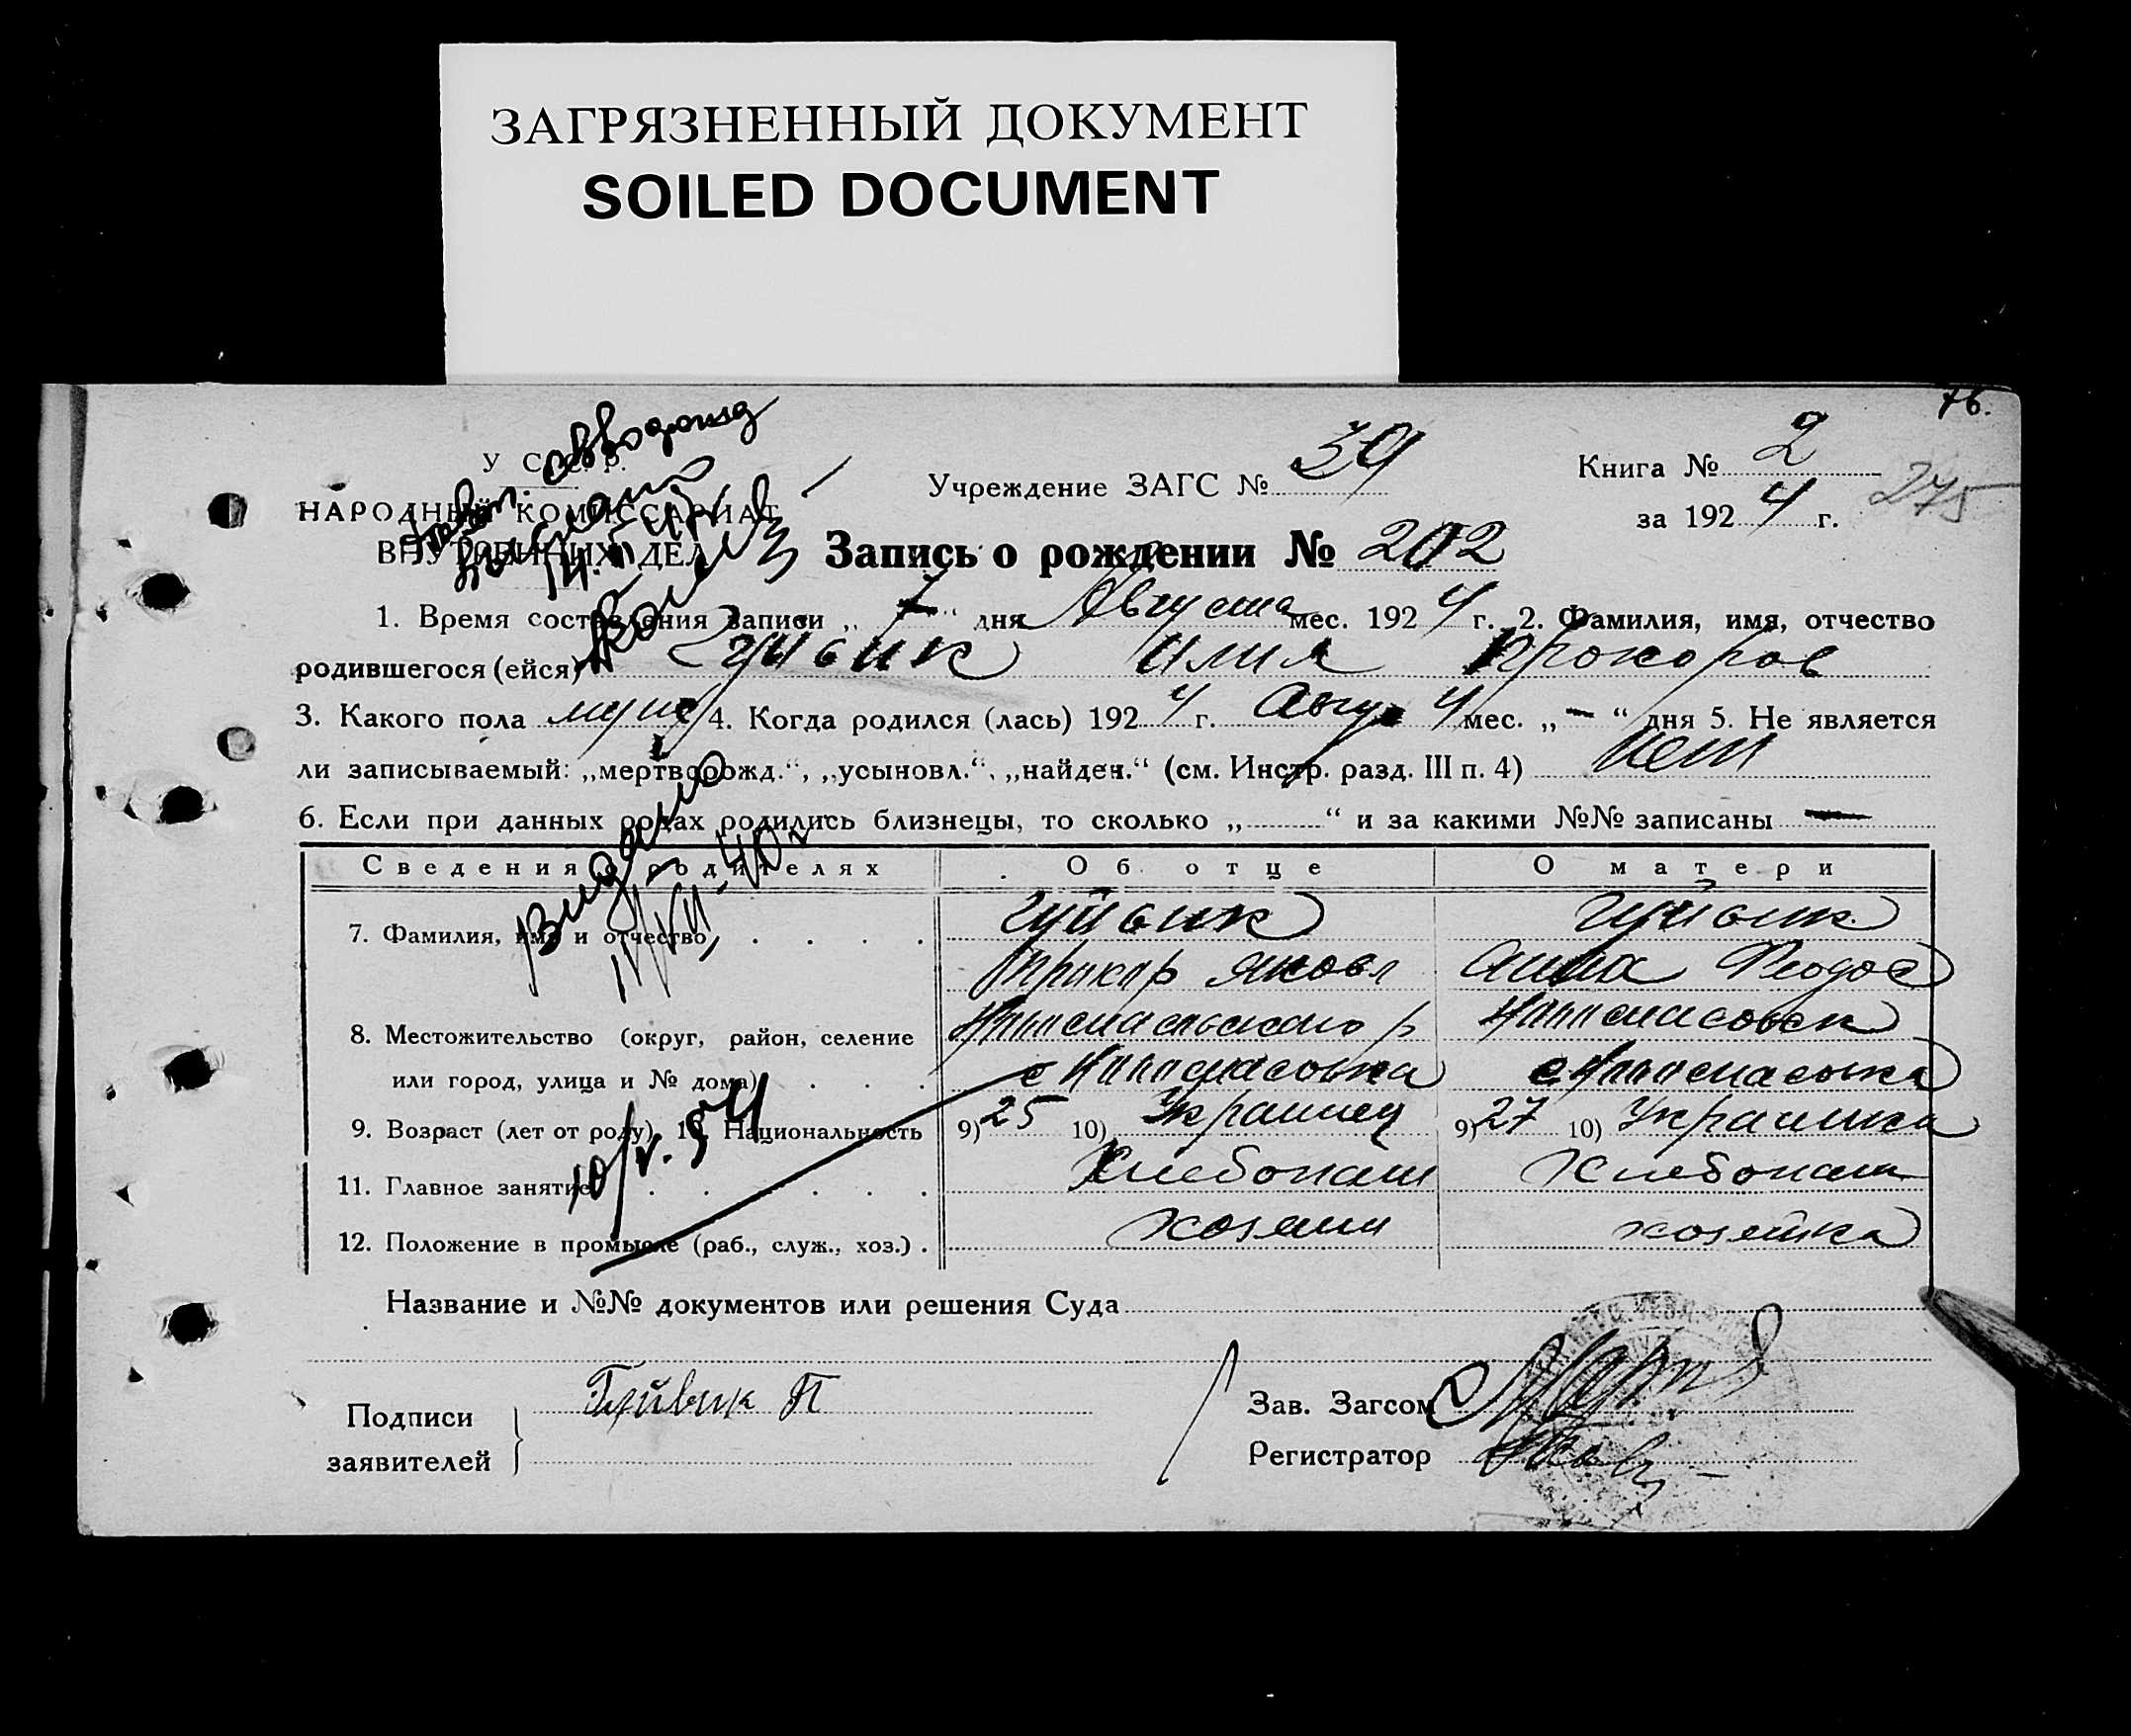 ЗАГРЯЗНЕННЫЙ ДОКУМЕНТ
SOILED DOCUMENT
76.
У С.С.Р.
НАРОДНЫЙ КОМИССАРИАТ
ВНУТРЕННИХ ДЕЛ
Учреждение ЗАГС № 39
Книга № 2
за 1924 г.
275
Запись о рождении № 202
1. Время составления записи „ 7 “ дня Августа мес. 1924 г. 2. Фамилия, имя, отчество
родившегося (ейся) Гуйвик Илия Прохоров
3. Какого пола муж 4. Когда родился (лась) 1924 г. Авгус 4 мес. „ — “ дня 5. Не является
ли записываемый: „мертворожд.“, „усыновл.“, „найден.“ (см. Инстр. разд. III п. 4) нет
6. Если при данных родах родились близнецы, то сколько „ “ и за какими №№ записаны —
Сведения о родителях Об отце О матери
7. Фамилия, имя и отчество Гуйвик Гуйвик
Яковл Анна Феодос
8. Местожительство (округ, район, селение
или город, улица и № дома)
9. Возраст (лет от роду) 10. Национальность 9) 25 10) Украинец 9) 27 10) Украинка
11. Главное занятие Хлебопаш Хлебопаш
12. Положение в промысле (раб., служ., хоз.) хозяин хозяйка
Видано
10/V.54
Название и №№ документов или решения Суда
Подписи
заявителей
Гуйвик П
Зав. Загсом
Регистратор